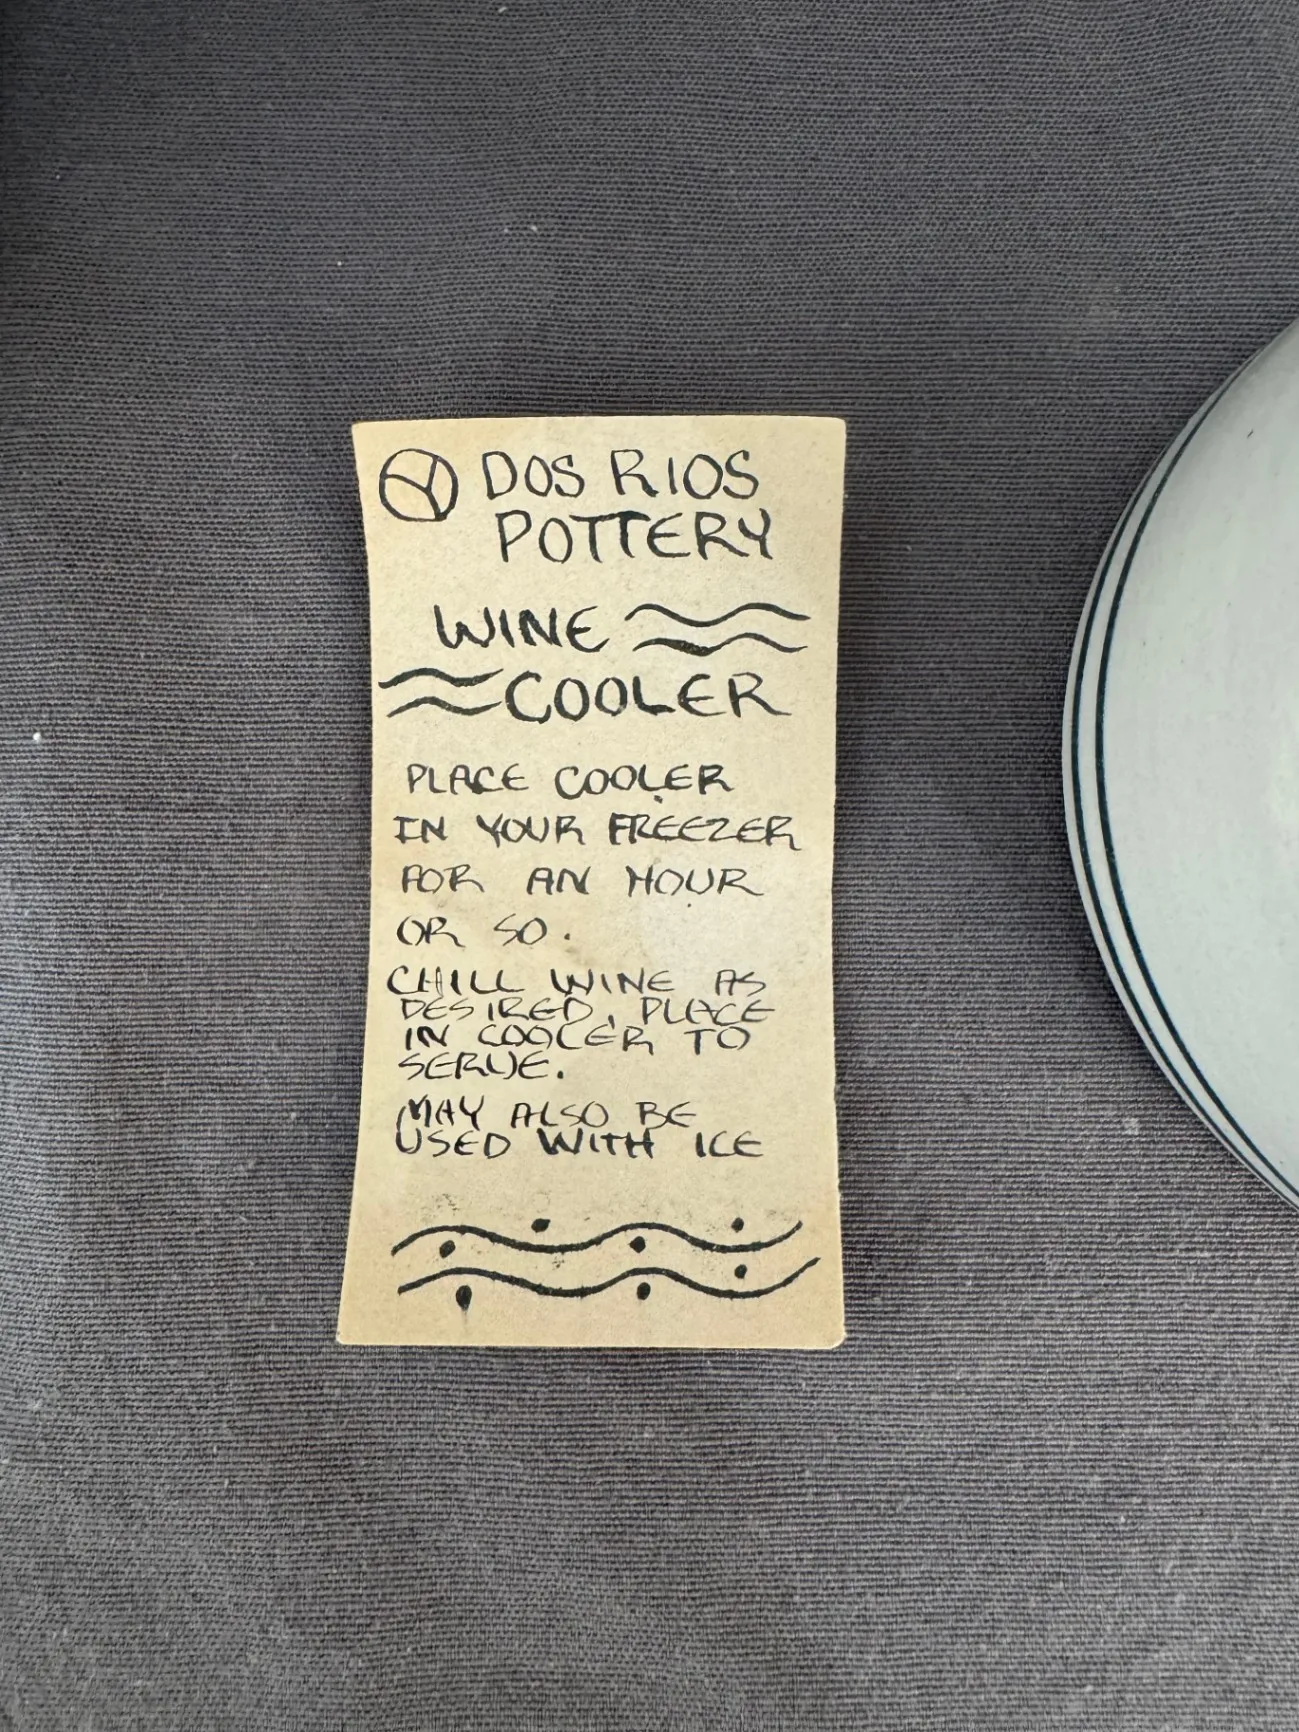 DOS RIOS
POTTERY
WINE
COOLER
PLACE COOLER
IN YOUR FREEZER
FOR AN HOUR
OR SO.
CHILL WINE AS
DESIRED, PLACE
IN COOLER TO
SERVE.
MAY ALSO BE
USED WITH ICE